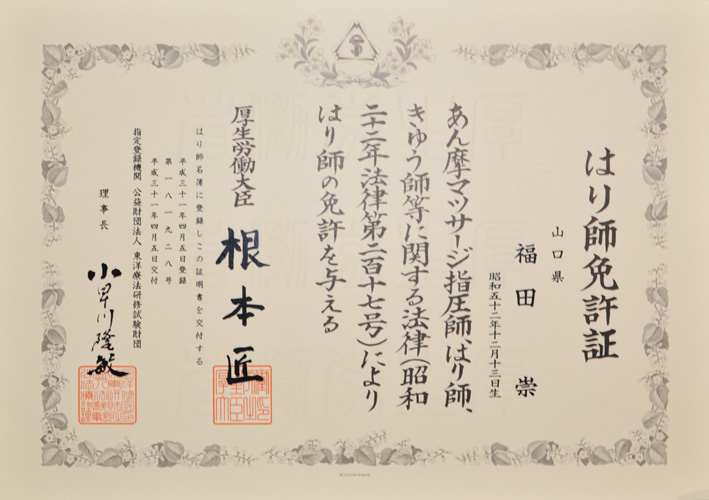 はり師免許証
山口県
福田 崇
昭和五十二年十二月十三日生
あん摩マツサージ指圧師、はり師、
きゆう師等に関する法律(昭和
二十二年法律第二百十七号)により
はり師の免許を与える
厚生労働大臣 根本匠
はり師名簿に登録しこの証明書を交付する
平成三十一年四月五日登録
第一八一九二八号
平成三十一年四月五日交付
指定登録機関 公益財団法人 東洋療法研修試験財団
理事長 小早川隆敏